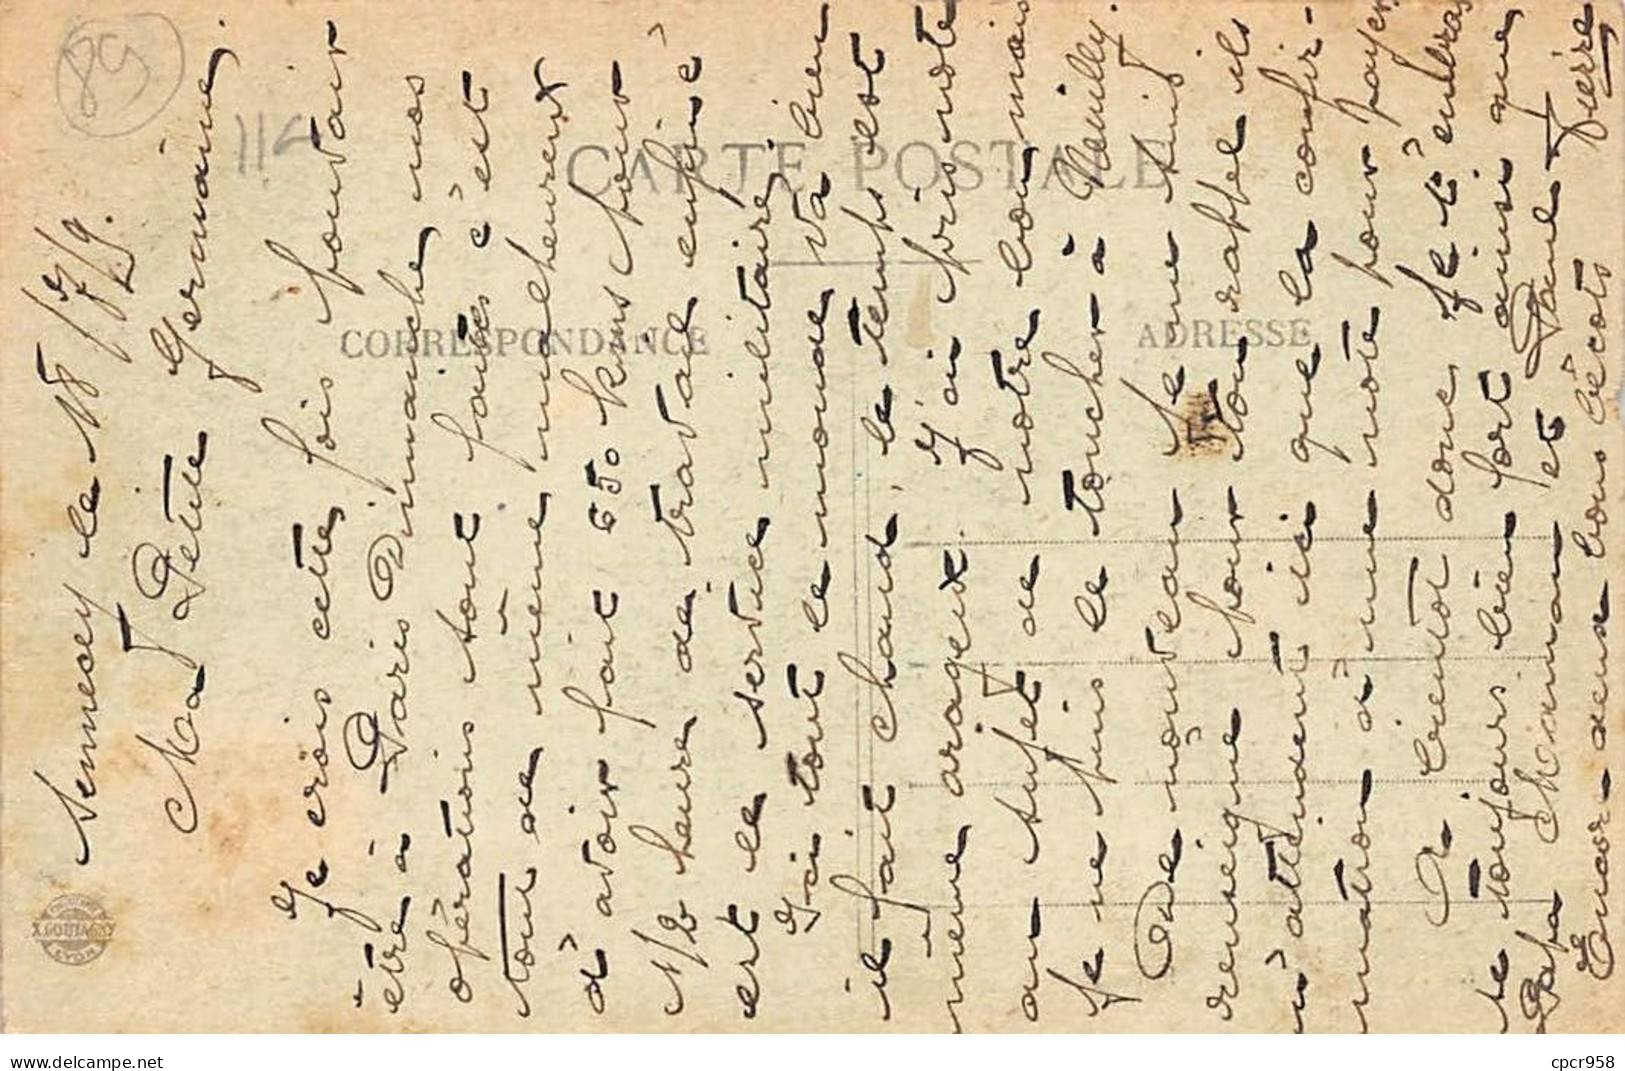 89
114
CARTE POSTALE
CORRESPONDANCE
ADRESSE
X. GOUTAGNY
LYON
Sennecey le 18/7/29.
Ma Petite Germaine.
Je crois cette fois pouvoir
être à Paris Dimanche, nos
opérations sont faites c'est
tout de même malheureux
d'avoir fait 650 kms pour
1/2 heure de travail enfin c'
est le service militaire!
Ici tout le monde va bien
il fait chaud, le temps est
même orageux. J'ai pris note
au sujet de notre bon, mais
je ne puis le toucher à Neuilly.
De nouveau je me suis
renseigné pour ton rappel ils
n'attendent ici que la confir-
mation d'une note pour payer.
A bientôt donc, je t'embras
se toujours bien fort ainsi que
Papa Maman et Paul. Pierre
Encore deux bons bécots
cpcr958
delcampe.net